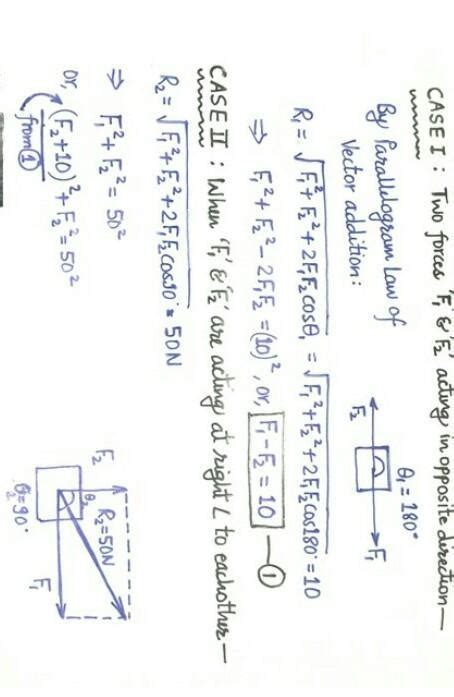 CASE I : Two forces 'F₁' & 'F₂' acting in opposite direction—
By Parallelogram Law of
Vector addition:
θ₁=180°
F₂
F₁
R₁ = √F₁²+F₂²+2F₁F₂cosθ₁ = √F₁²+F₂²+2F₁F₂cos180° = 10
⇒ F₁²+F₂²-2F₁F₂ = (10)², or, F₁-F₂ = 10 —①
CASE II : When 'F₁' & 'F₂' are acting at right ∠ to eachother—
R₂ = √F₁²+F₂²+2F₁F₂cos90° = 50N
⇒ F₁²+F₂² = 50²
or, (F₂+10)²+F₂² = 50²
from①
F₂
R₂=50N
θ₂
F₁
θ₂=90°